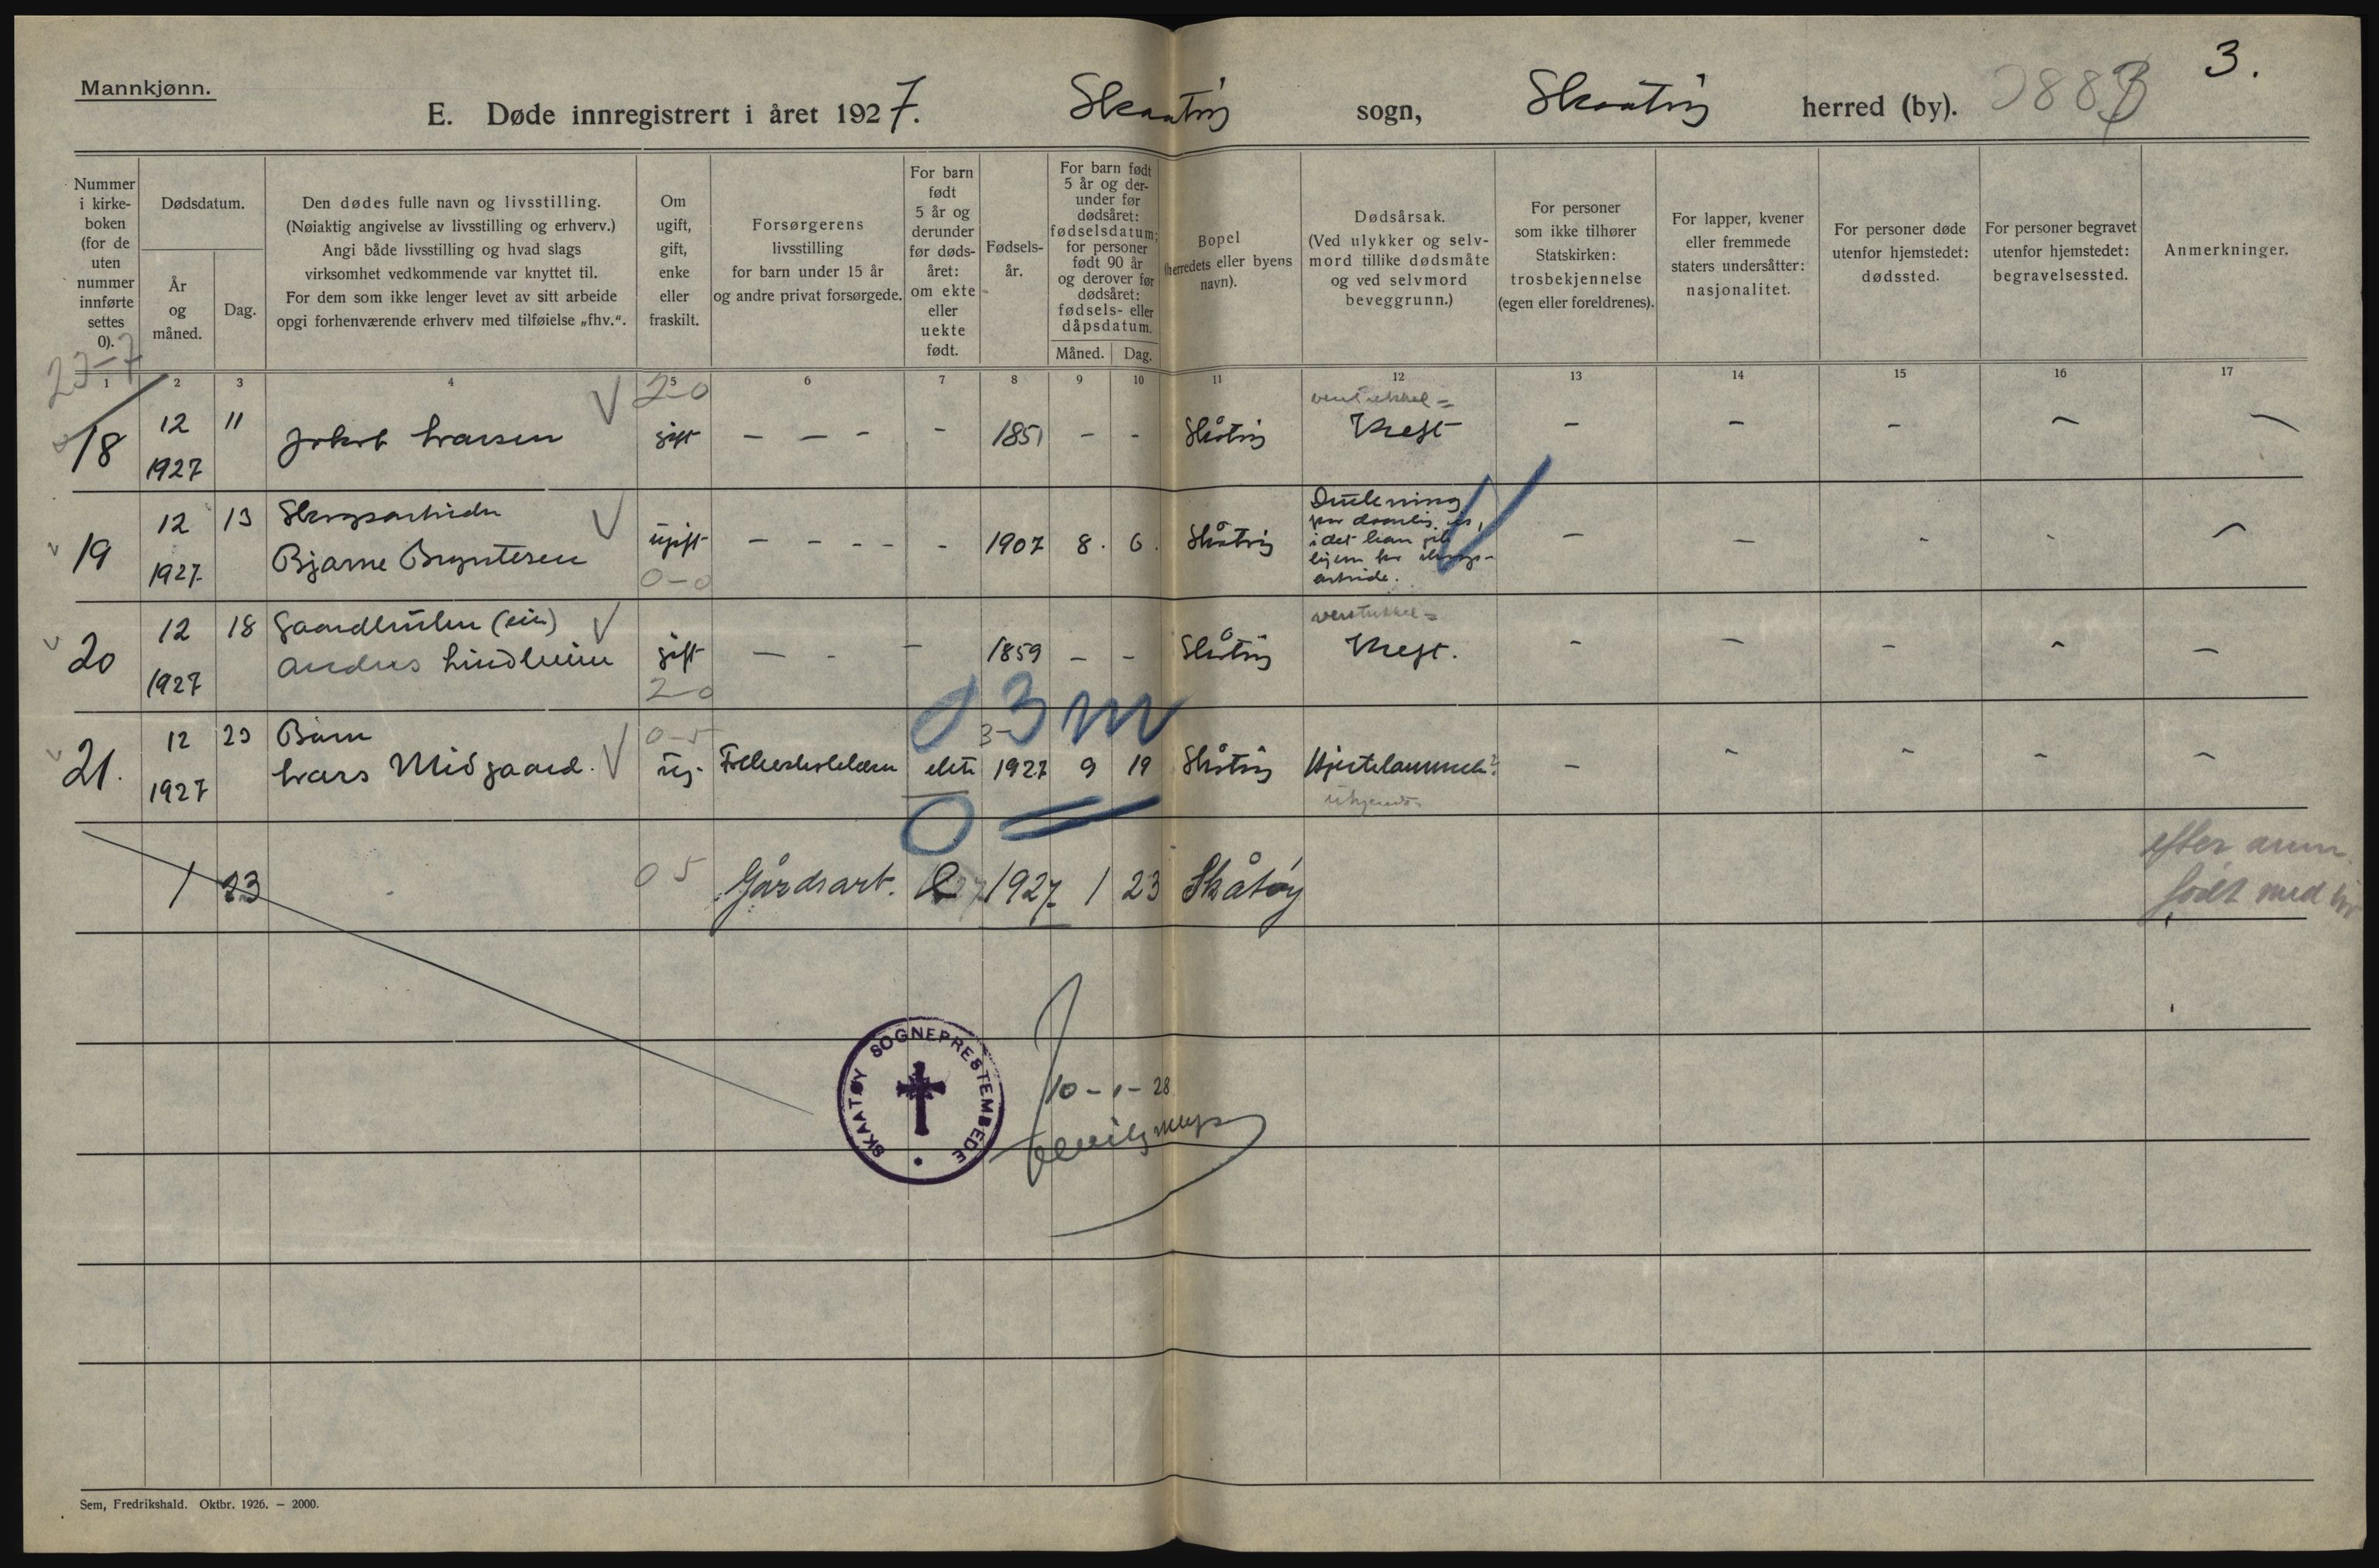 Mannkjønn.
3.
E. Døde innregistrert i året 1927. Skaatöy sogn, Skaatöy herred (by).
Nummer i kirke-boken (for de uten nummer innførte settes 0).
Dødsdatum.
År og måned.
Dag.
Den dødes fulle navn og livsstilling.
(Nøiaktig angivelse av livsstilling og erhverv.)
Angi både livsstilling og hvad slags
virksomhet vedkommende var knyttet til.
For dem som ikke lenger levet av sitt arbeide
opgi forhenværende erhverv med tilføielse „fhv.“.
Om ugift, gift, enke eller fraskilt.
Forsørgerens
livsstilling
for barn under 15 år
og andre privat forsørgede.
For barn født 5 år og derunder før døds-året: om ekte eller uekte født.
Fødsels-år.
For barn født 5 år og der-under før dødsåret: fødselsdatum; for personer født 90 år og derover før dødsåret: fødsels- eller dåpsdatum.
Måned. Dag.
Bopel
(herredets eller byens
navn).
Dødsårsak.
(Ved ulykker og selv-
mord tillike dødsmåte
og ved selvmord
beveggrunn.)
For personer
som ikke tilhører
Statskirken:
trosbekjennelse
(egen eller foreldrenes).
For lapper, kvener
eller fremmede
staters undersåtter:
nasjonalitet.
For personer døde
utenfor hjemstedet:
dødssted.
For personer begravet
utenfor hjemstedet:
begravelsessted.
Anmerkninger.
23-7
1 2 3 4 5 6 7 8 9 10 11 12 13 14 15 16 17
2-0
18 12 1927 11 Jakob Larsen gift – – – – 1851 – – Skåtöy Kreft – – – – –
19 12 1927 13 Skogsarbeider
Bjarne Bryntesen ugift – – – – – 1907 8. 6. Skåtöy
0-0
Drukning
paa daarlig is,
i det han gik
hjem fra skogs-
arbeide.
– – – – –
20 12 1927 18 Gaardbruker (eier)
Anders Lindheim gift – – – 1859 – – Skåtöy Kreft. – – – – –
2-0
03m
21. 12 1927 23 Barn
Lars Midgaard. ug. ekte 1927 9 19 Skåtöy Hjertelammelse? – – – – –
0-5
3-
0
1 23 05 Gårdsarb. 1927 1 23 Skåtøy
efter anm.
født med liv
SKAATØY SOGNEPRESTEMBEDE
10-1-28
Sem, Fredrikshald. Oktbr. 1926. — 2000.